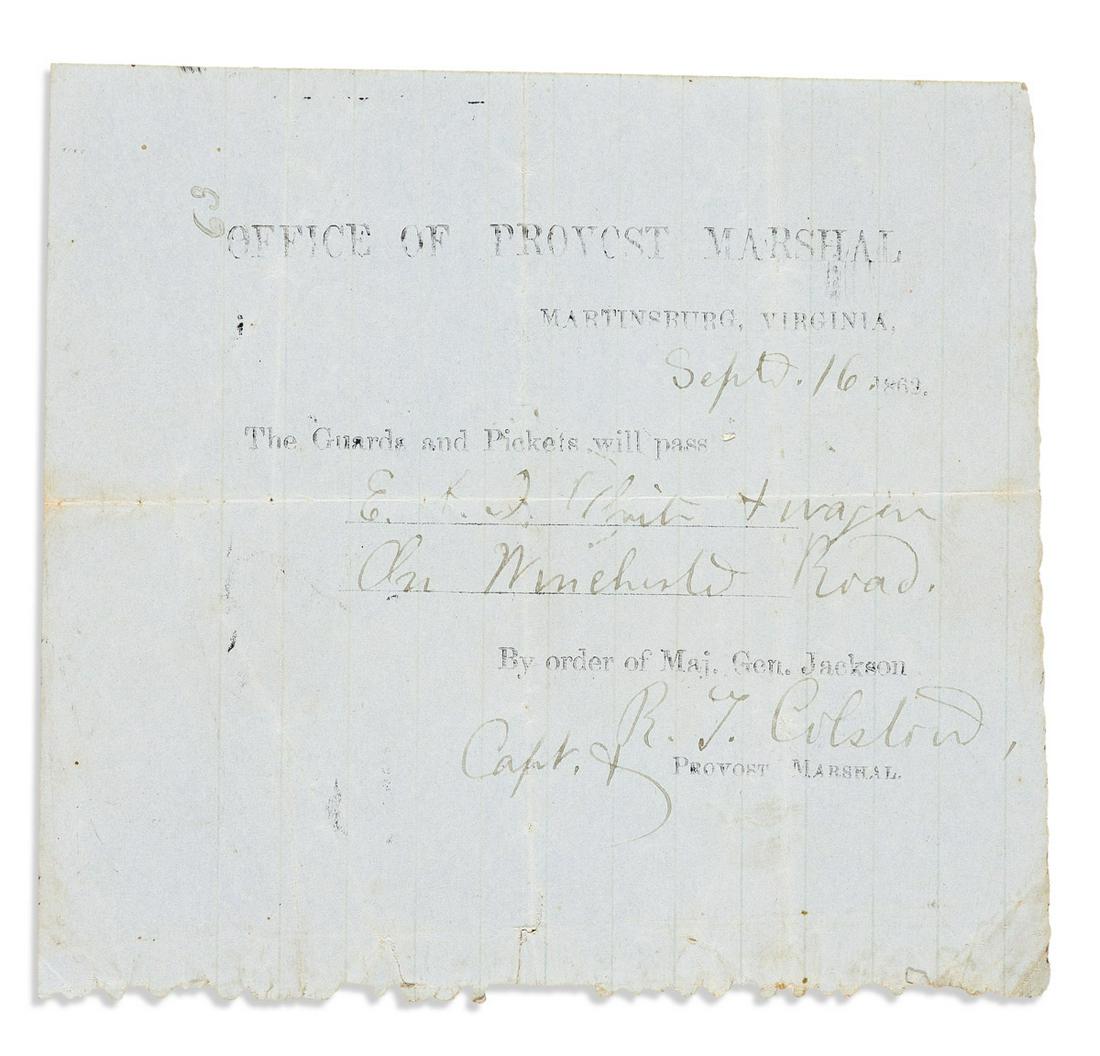 OFFICE OF PROVOST MARSHAL
MARTINSBURG, VIRGINIA,
Septr. 16 1862.
The Guards and Pickets will pass
E. White & wagon
On Winchester Road.
By order of Maj. Gen. Jackson
R. T. Colston,
Capt. &
PROVOST MARSHAL.